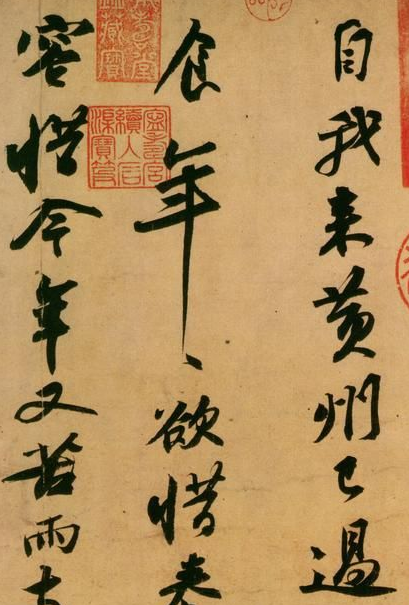 自我来黄州已過
食年〻欲惜春
容惜今年又苦雨